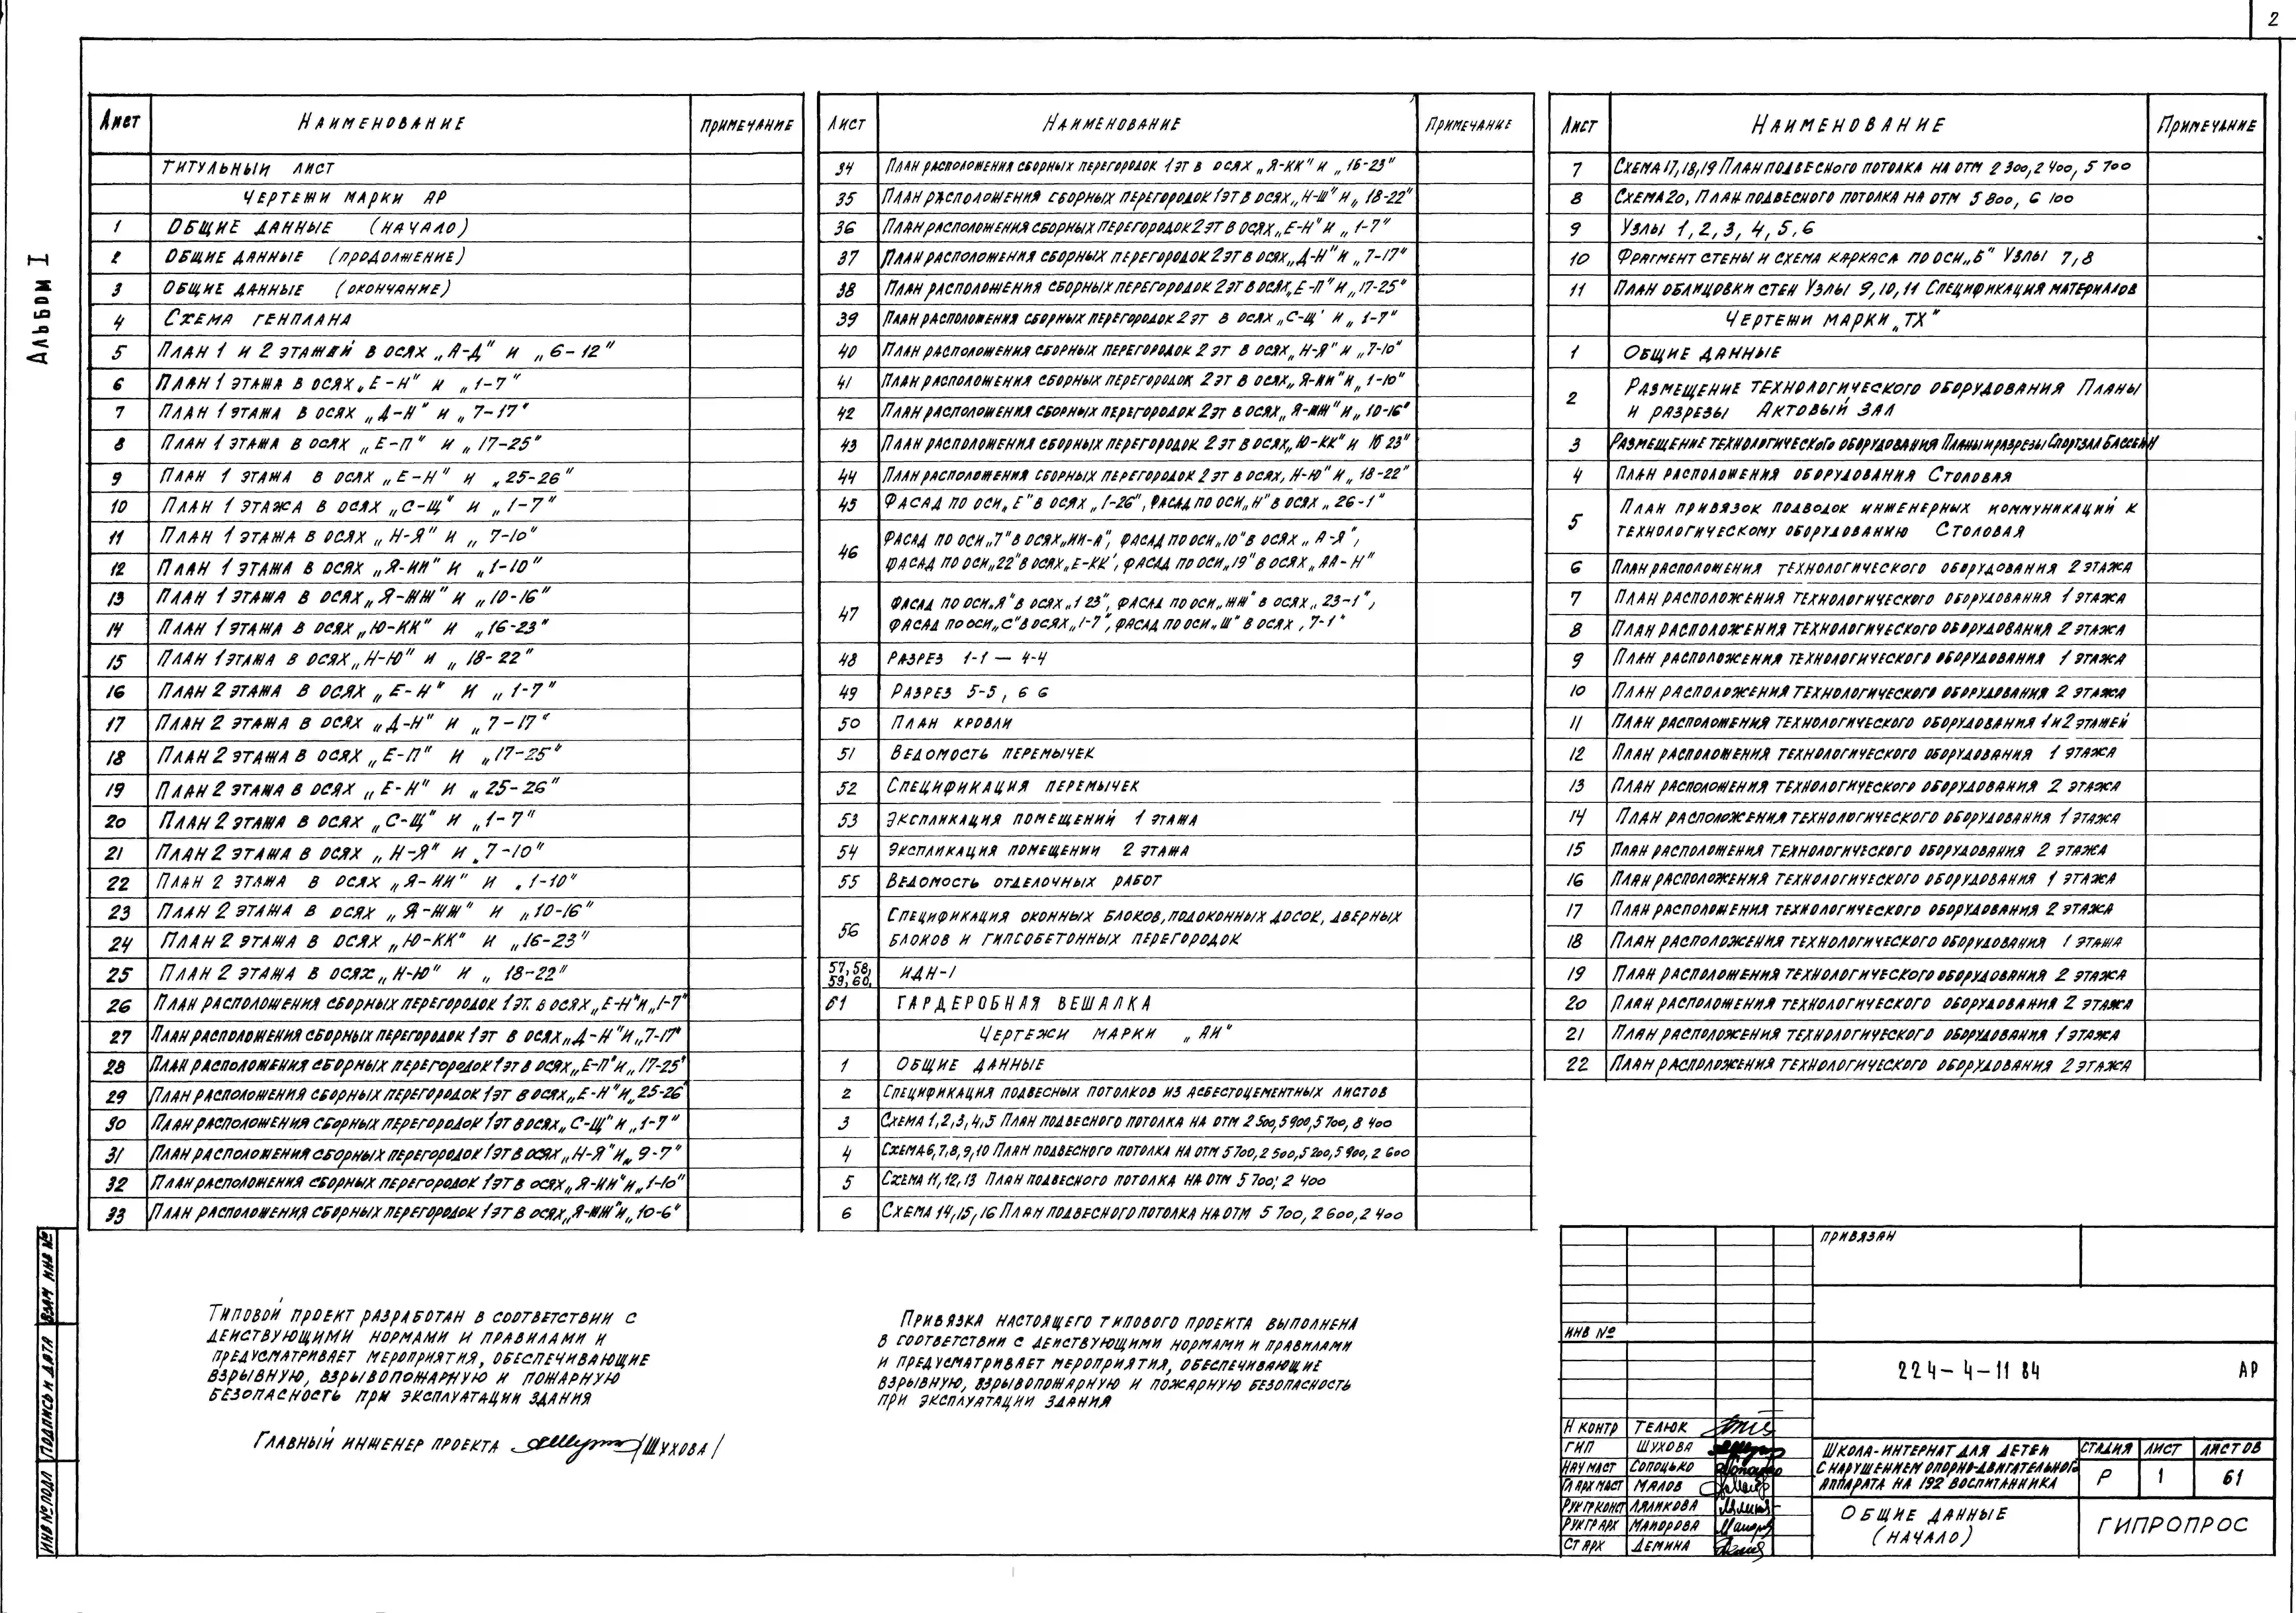 2
Альбом I
Лист Наименование Примечание
Титульный лист
Чертежи марки АР
1 Общие данные (начало)
2 Общие данные (продолжение)
3 Общие данные (окончание)
4 Схема генплана
5 План 1 и 2 этажей в осях „А-Д" и „6-12"
6 План 1 этажа в осях „Е-Н" и „1-7"
7 План 1 этажа в осях „Д-Н" и „7-17"
8 План 1 этажа в осях „Е-П" и „17-25"
9 План 1 этажа в осях „Е-Н" и „25-26"
10 План 1 этажа в осях „С-Щ" и „1-7"
11 План 1 этажа в осях „Н-Я" и „7-10"
12 План 1 этажа в осях „Я-ИИ" и „1-10"
13 План 1 этажа в осях „Я-ЖЖ" и „10-16"
14 План 1 этажа в осях „Ю-КК" и „16-23"
15 План 1 этажа в осях „Н-Ю" и „18-22"
16 План 2 этажа в осях „Е-Н" и „1-7"
17 План 2 этажа в осях „Д-Н" и „7-17"
18 План 2 этажа в осях „Е-П" и „17-25"
19 План 2 этажа в осях „Е-Н" и „25-26"
20 План 2 этажа в осях „С-Щ" и „1-7"
21 План 2 этажа в осях „Н-Я" и „7-10"
22 План 2 этажа в осях „Я-ИИ" и „1-10"
23 План 2 этажа в осях „Я-ЖЖ" и „10-16"
24 План 2 этажа в осях „Ю-КК" и „16-23"
25 План 2 этажа в осях „Н-Ю" и „18-22"
26 План расположения сборных перегородок 1 эт. в осях „Е-Н" и „1-7"
27 План расположения сборных перегородок 1 эт в осях „Д-Н" и „7-17"
28 План расположения сборных перегородок 1 эт в осях „Е-П" и „17-25"
29 План расположения сборных перегородок 1 эт в осях „Е-Н" и „25-26"
30 План расположения сборных перегородок 1 эт в осях „С-Щ" и „1-7"
31 План расположения сборных перегородок 1 эт в осях „Н-Я" и „9-7"
32 План расположения сборных перегородок 1 эт в осях „Я-ИИ" и „1-10"
33 План расположения сборных перегородок 1 эт в осях „Я-ЖЖ" и „10-6"
Лист Наименование Примечание
34 План расположения сборных перегородок 1 эт в осях „Я-КК" и „16-23"
35 План расположения сборных перегородок 1 эт в осях „Н-Ш" и „18-22"
36 План расположения сборных перегородок 2 эт в осях „Е-Н" и „1-7"
37 План расположения сборных перегородок 2 эт в осях „Д-Н" и „7-17"
38 План расположения сборных перегородок 2 эт в осях „Е-П" и „17-25"
39 План расположения сборных перегородок 2 эт в осях „С-Щ' и „1-7"
40 План расположения сборных перегородок 2 эт в осях „Н-Я" и „7-10"
41 План расположения сборных перегородок 2 эт в осях „Я-ИИ" и „1-10"
42 План расположения сборных перегородок 2 эт в осях „Я-ЖЖ" и „10-16"
43 План расположения сборных перегородок 2 эт в осях „Ю-КК" и 16 23"
44 План расположения сборных перегородок 2 эт в осях, Н-Ю" и „18-22"
45 Фасад по оси „Е" в осях „1-26", Фасад по оси „Н" в осях „26-1"
46 Фасад по оси „7" в осях „ИИ-А", фасад по оси „10" в осях „А-Я",
фасад по оси „22" в осях „Е-КК', фасад по оси „19" в осях „АА-Н"
47 Фасад по оси „Я" в осях „1 23", фасад по оси „ЖЖ" в осях „23-1",
фасад по оси „С" в осях „1-7", фасад по оси „Ш" в осях , 7-1"
48 Разрез 1-1 — 4-4
49 Разрез 5-5, 6 6
50 План кровли
51 Ведомость перемычек
52 Спецификация перемычек
53 Экспликация помещений 1 этажа
54 Экспликация помещении 2 этажа
55 Ведомость отделочных работ
56 Спецификация оконных блоков, подоконных досок, дверных
блоков и гипсобетонных перегородок
57, 58, 59, 60, ИДН-1
61 Гардеробная вешалка
Чертежи марки „АИ"
1 Общие данные
2 Спецификация подвесных потолков из асбестоцементных листов
3 Схема 1,2,3,4,5 План подвесного потолка на отм 2 500, 5 900, 5 700, 8 400
4 Схема 6,7,8,9,10 План подвесного потолка на отм 5 700, 2 500, 5 200, 5 900, 2 600
5 Схема 11,12,13 План подвесного потолка на отм 5 700; 2 400
6 Схема 14,15,16 План подвесного потолка на отм 5 700, 2 600, 2 400
Лист Наименование Примечание
7 Схема 17,18,19 План подвесного потолка на отм 2 300, 2 400, 5 700
8 Схема 20, План подвесного потолка на отм 5 800, 6 100
9 Узлы 1,2,3, 4,5,6
10 Фрагмент стены и схема каркаса по оси „Б" Узлы 7,8
11 План облицовки стен Узлы 9,10,11 Спецификация материалов
Чертежи марки „ТХ"
1 Общие данные
2 Размещение технологического оборудования Планы
и разрезы Актовый зал
3 Размещение технологического оборудования Планы и разрезы Спортзал Бассейн
4 План расположения оборудования Столовая
5 План привязок подводок инженерных коммуникаций к
технологическому оборудованию Столовая
6 План расположения технологического оборудования 2 этажа
7 План расположения технологического оборудования 1 этажа
8 План расположения технологического оборудования 2 этажа
9 План расположения технологического оборудования 1 этажа
10 План расположения технологического оборудования 2 этажа
11 План расположения технологического оборудования 1 и 2 этажей
12 План расположения технологического оборудования 1 этажа
13 План расположения технологического оборудования 2 этажа
14 План расположения технологического оборудования 1 этажа
15 План расположения технологического оборудования 2 этажа
16 План расположения технологического оборудования 1 этажа
17 План расположения технологического оборудования 2 этажа
18 План расположения технологического оборудования 1 этажа
19 План расположения технологического оборудования 2 этажа
20 План расположения технологического оборудования 2 этажа
21 План расположения технологического оборудования 1 этажа
22 План расположения технологического оборудования 2 этажа
Типовой проект разработан в соответствии с
действующими нормами и правилами и
предусматривает мероприятия, обеспечивающие
взрывную, взрывопожарную и пожарную
безопасность при эксплуатации здания
Главный инженер проекта /Шухова/
Привязка настоящего типового проекта выполнена
в соответствии с действующими нормами и правилами
и предусматривает мероприятия, обеспечивающие
взрывную, взрывопожарную и пожарную безопасность
при эксплуатации здания
Привязан
Инв №
224-4-11 84 АР
Н контр Телюк
ГИП Шухова
Нач маст Сопоцько
Гл арх маст Малов
Рук гр конст Ляликова
Рук гр арх Манорова
Ст арх Демина
Школа-интернат для детей
с нарушением опорно-двигательного
аппарата на 192 воспитанника
Стадия Лист Листов
Р 1 61
Общие данные
(начало)
ГИПРОПРОС
Взам инв №
Подпись и дата
Инв № подл